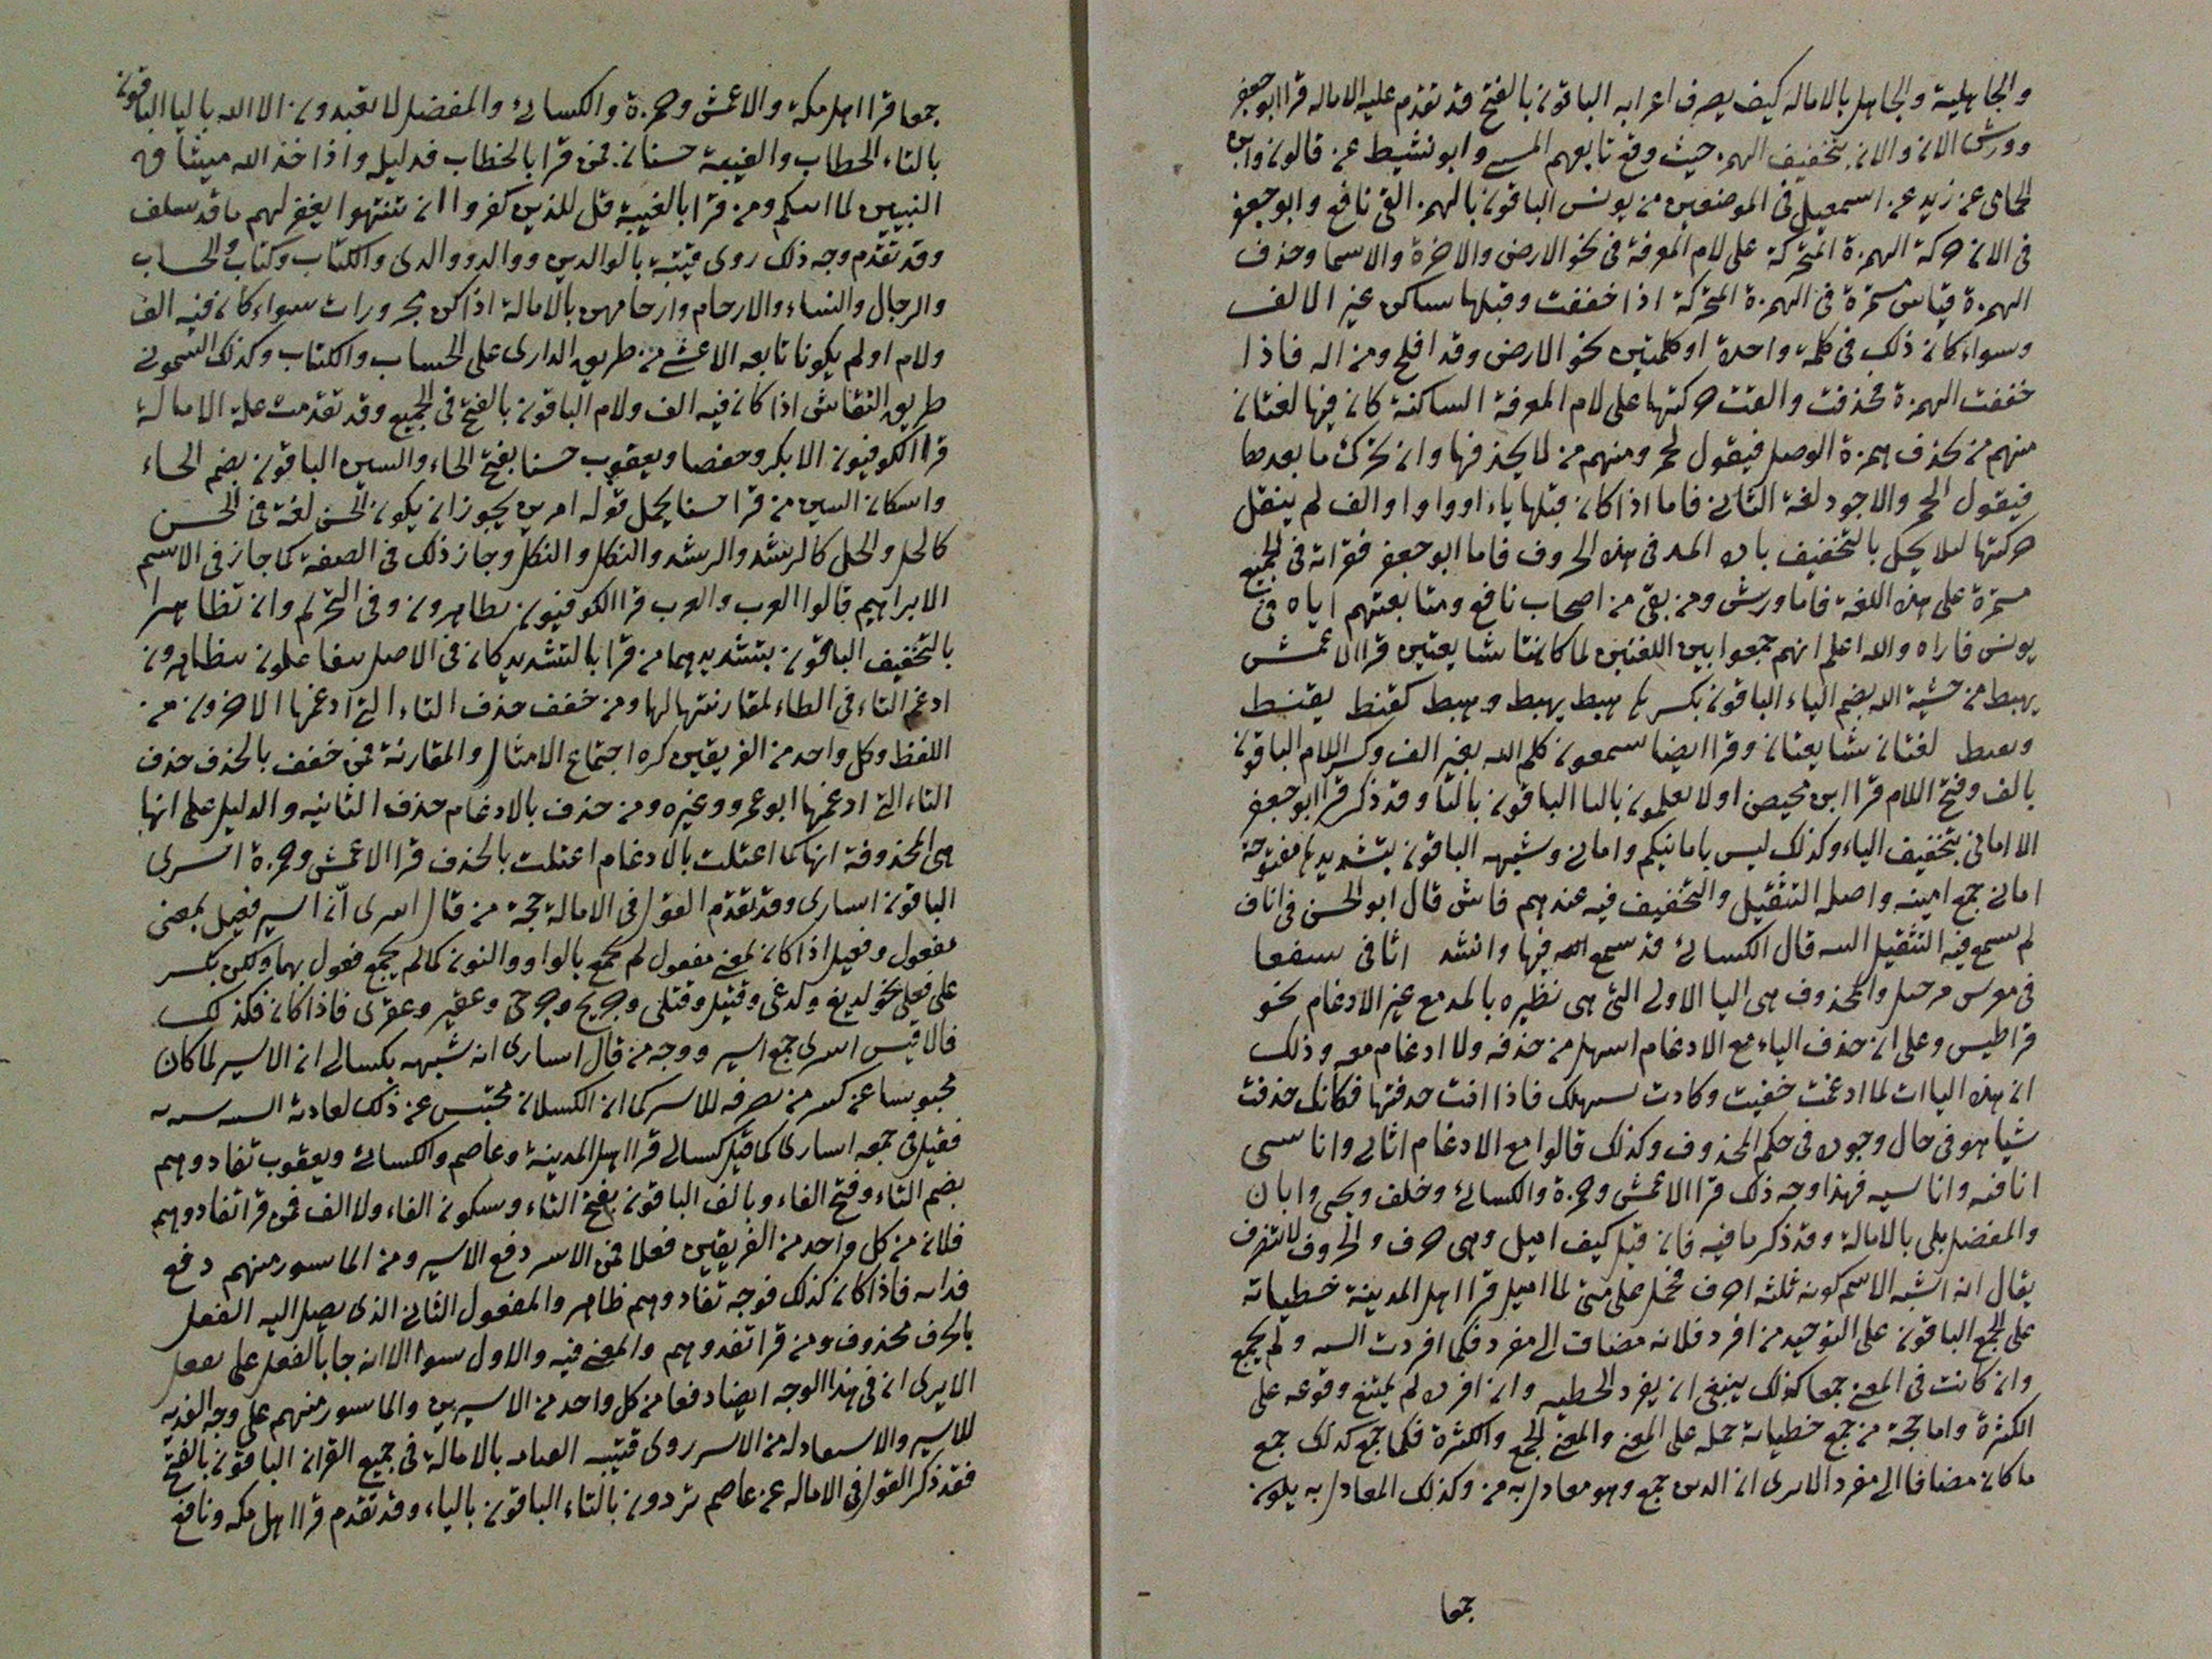 والجاهلية والجاهل بالاماله كيف يصرف اعرابه الباقون بالفتح قد تقدم عليه الاماله قرا ابو جعفر
وورش الان والان بتخفيف الهمزة حيث وقع تابعهم المسي وابو نشيط عن قالون وابن
الحمامي عن زيد عن اسمعيل في الموضعين من يونس الباقون بالهمز القى نافع وابو جعفر
في الان حركة الهمزة المتحركة على لام المعرفة في نحو الارض والاخرة والاسما وحذف
الهمزة قياس مستمرة في الهمزة المتحركة اذا خففت وقبلها ساكن غير الالف
وسواء كان ذلك في كلمة واحدة او كلمتين نحو الارض وقد افلح ومن اله فاذا
خففت الهمزة فحذفت والقت حركتها على لام المعرفة الساكنة كان فيها لغتان
منهم من يحذف همزة الوصل فيقول لحمر ومنهم من لا يحذفها وان تحرك ما بعدها
فيقول الحمر والاجود لغة الثاني فاما اذا كان قبلها ياء او واو او الف لم ينقل
حركتها ليلا يحل بالتخفيف باب المد في هذه الحروف فاما ابو جعفر فقراته في الجميع
مستمرة على هذه اللغة فاما ورش ومن بقي من اصحاب نافع ومتابعتهم اياه في
يونس فاراه والله اعلم انهم جمعوا بين اللغتين لما كانتا شايعتين قرا الاعمش
يهبط من خشية الله بضم الباء الباقون بكسرها هبط يهبط وهبط كقنط يقنط
لغتان شايعتان وقرا ايضا يسمعون كلم الله بغير الف وكسر اللام الباقون
بالف وفتح اللام قرا ابن محيصن اولا يعلمون بالتا الباقون باليا وقد ذكر قرا ابو جعفر
الا اماني بتخفيف الياء وكذلك ليس بامانيكم واماني وشبهه الباقون بتشديدها مفتوحة
اماني جمع امنية واصله التثقيل والتخفيف فيه عندهم فاش قال ابو الحسن في اثاف
لم يسمع فيه التثقيل البتة قال الكسائي قد سمع الله فيها وانشد اثافي سفعا
في معرس مرجل والمحذوف هي اليا الاولى التي هي نظيره بالمد مع غير الادغام نحو
قراطيس وعلى ان حذف الياء مع الادغام اسهل من حذفه ولا ادغام معه وذلك
ان هذه الياات لما ادغمت خفيت وكادت تستهلك فاذا انت حذفتها فكانك حذفت
شيا هو في حال وجوده في حكم المحذوف وكذلك قالوا مع الادغام اثافي واناسي
اثافيه واناسيه فهذا وجه ذلك قرا الاعمش وحمزة والكسائي وخلف ويحيى وابان
والمفضل بلى بالامالة وقد ذكر ما فيه فان قيل كيف اميل وهي حرف والحروف لا تتصرف
يقال انه اشبه الاسم كونه ثلثه احرف فحمل على متى لما اميل قرا اهل المدينة خطيئاته
على الجمع الباقون على التوحيد من افرد فلانه مضاف الى مفرد فكما افردت السيئة ولم يجمع
وان كانت في المعنى جمعا كذلك ينبغي ان يفرد الخطيه وان افرده لم يمتنع وقوعه على
الكثرة واما حجة من جمع خطياته حمله على المعنى والمعنى الجمع والكثرة فكما جمع كذلك جمع
ما كان مضافا الى مفرد الا ترى ان الذين جمع وهو معادل به من وكذلك المعادل به يكون
جمعا
جمعا قرا اهل مكة والاعمش وحمزة والكسائي والمفضل لا يعبدون الا الله باليا الباقون
بالتاء الخطاب والغيبة حسنان فمن قرا بالخطاب فدليله واذ اخذ الله ميثاق
النبيين لما اتيتكم ومن قرا بالغيبة قل للذين كفروا ان ينتهوا يغفر لهم ما قد سلف
وقد تقدم وجه ذلك روى قتيبة بالوالدين ووالد ووالدي والكتاب وكتاب والحساب
والرجال والنساء والارحام وارحامهن بالامالة اذا كن مجرورات سواء كان فيه الف
ولام او لم يكونا تابعه الاعشى من طريق الداري على الحساب والكتاب وكذلك الشموني
طريق النقاش اذا كان فيه الف ولام الباقون بالفتح في الجميع وقد تقدمت علة الامالة
قرا الكوفيون الا بكر وحفصا ويعقوب حسنا بفتح الحاء والسين الباقون بضم الحاء
واسكان السين من قرا حسنا يحمل قوله امرين يجوز ان يكون الحسن لغة في الحسن
كالحل والحلل كالرشد والرشد والثكل والثكل وجاز ذلك في الصفة كما جاز في الاسم
الا تراهم قالوا العرب والعرب قرا الكوفيون تظاهرون وفي التحريم وان تظاهرا
بالتخفيف الباقون بتشديدهما من قرا بالتشديد كان في الاصل تتفاعلون تتظاهرون
ادغم التاء في الظاء لمقارنتها لها ومن خفف حذف التاء التي ادغمها الاخرون من
اللفظ وكل واحد من الفريقين كره اجتماع الامثال والمقارنة فمن خفف بالحذف حذف
التاء التي ادغمها ابو عمرو وغيره ومن حذف بالادغام حذف الثانيه والدليل على انها
هي المحذوفة انها كما اعتلت بالادغام اعتلت بالحذف قرا الاعمش وحمزة اسرى
الباقون اسارى وقد تقدم القول في الامالة حجة من قال اسرى ان اسير فعيل بمعنى
مفعول وفعيل اذا كان لمعنى مفعول لم يجمع بالواو والنون كما لم يجمع فعول بهما ولكن يكسر
على فعلى نحو لديغ ولدغى وقتيل وقتلى وجريح وجرحى وعقير وعقرى فاذا كان فكذلك
فالاقيس اسرى جمع اسير ووجه من قال اسارى انه شبهه بكسالى ان الاسير لما كان
محبوسا عن كثير من تصرفه للاسر كما ان الكسلان محتبس عن ذلك لعادته السيئة
فقيل في جمعه اسارى كما قيل كسالى قرا اهل المدينة وعاصم والكسائي ويعقوب تفادوهم
بضم التاء وفتح الفاء وبالف الباقون بفتح التاء وسكون الفاء ولا الف فمن قرا تفادوهم
فلان من كل واحد من الفريقين فعلا فمن الاسر دفع الاسير ومن الماسور منهم دفع
فدايه فاذا كان كذلك فوجه تفادوهم ظاهر والمفعول الثاني الذي يصل اليه الفعل
بالحرف محذوف ومن قرا تفدوهم والمعنى فيه والاول سوا الا انه جا بالفعل على يفعل
الا يرى ان في هذا الوجه ايضا دفعا من كل واحد من الاسيرين والماسور منهم على وجه الفديه
للاسير والاستعادله من الاسر روى قتيبه القيامه بالامالة في جميع القران الباقون بالفتح
فقد ذكر القول في الاماله عن عاصم تردون بالتاء الباقون بالياء وقد تقدم قرا اهل مكه ونافع